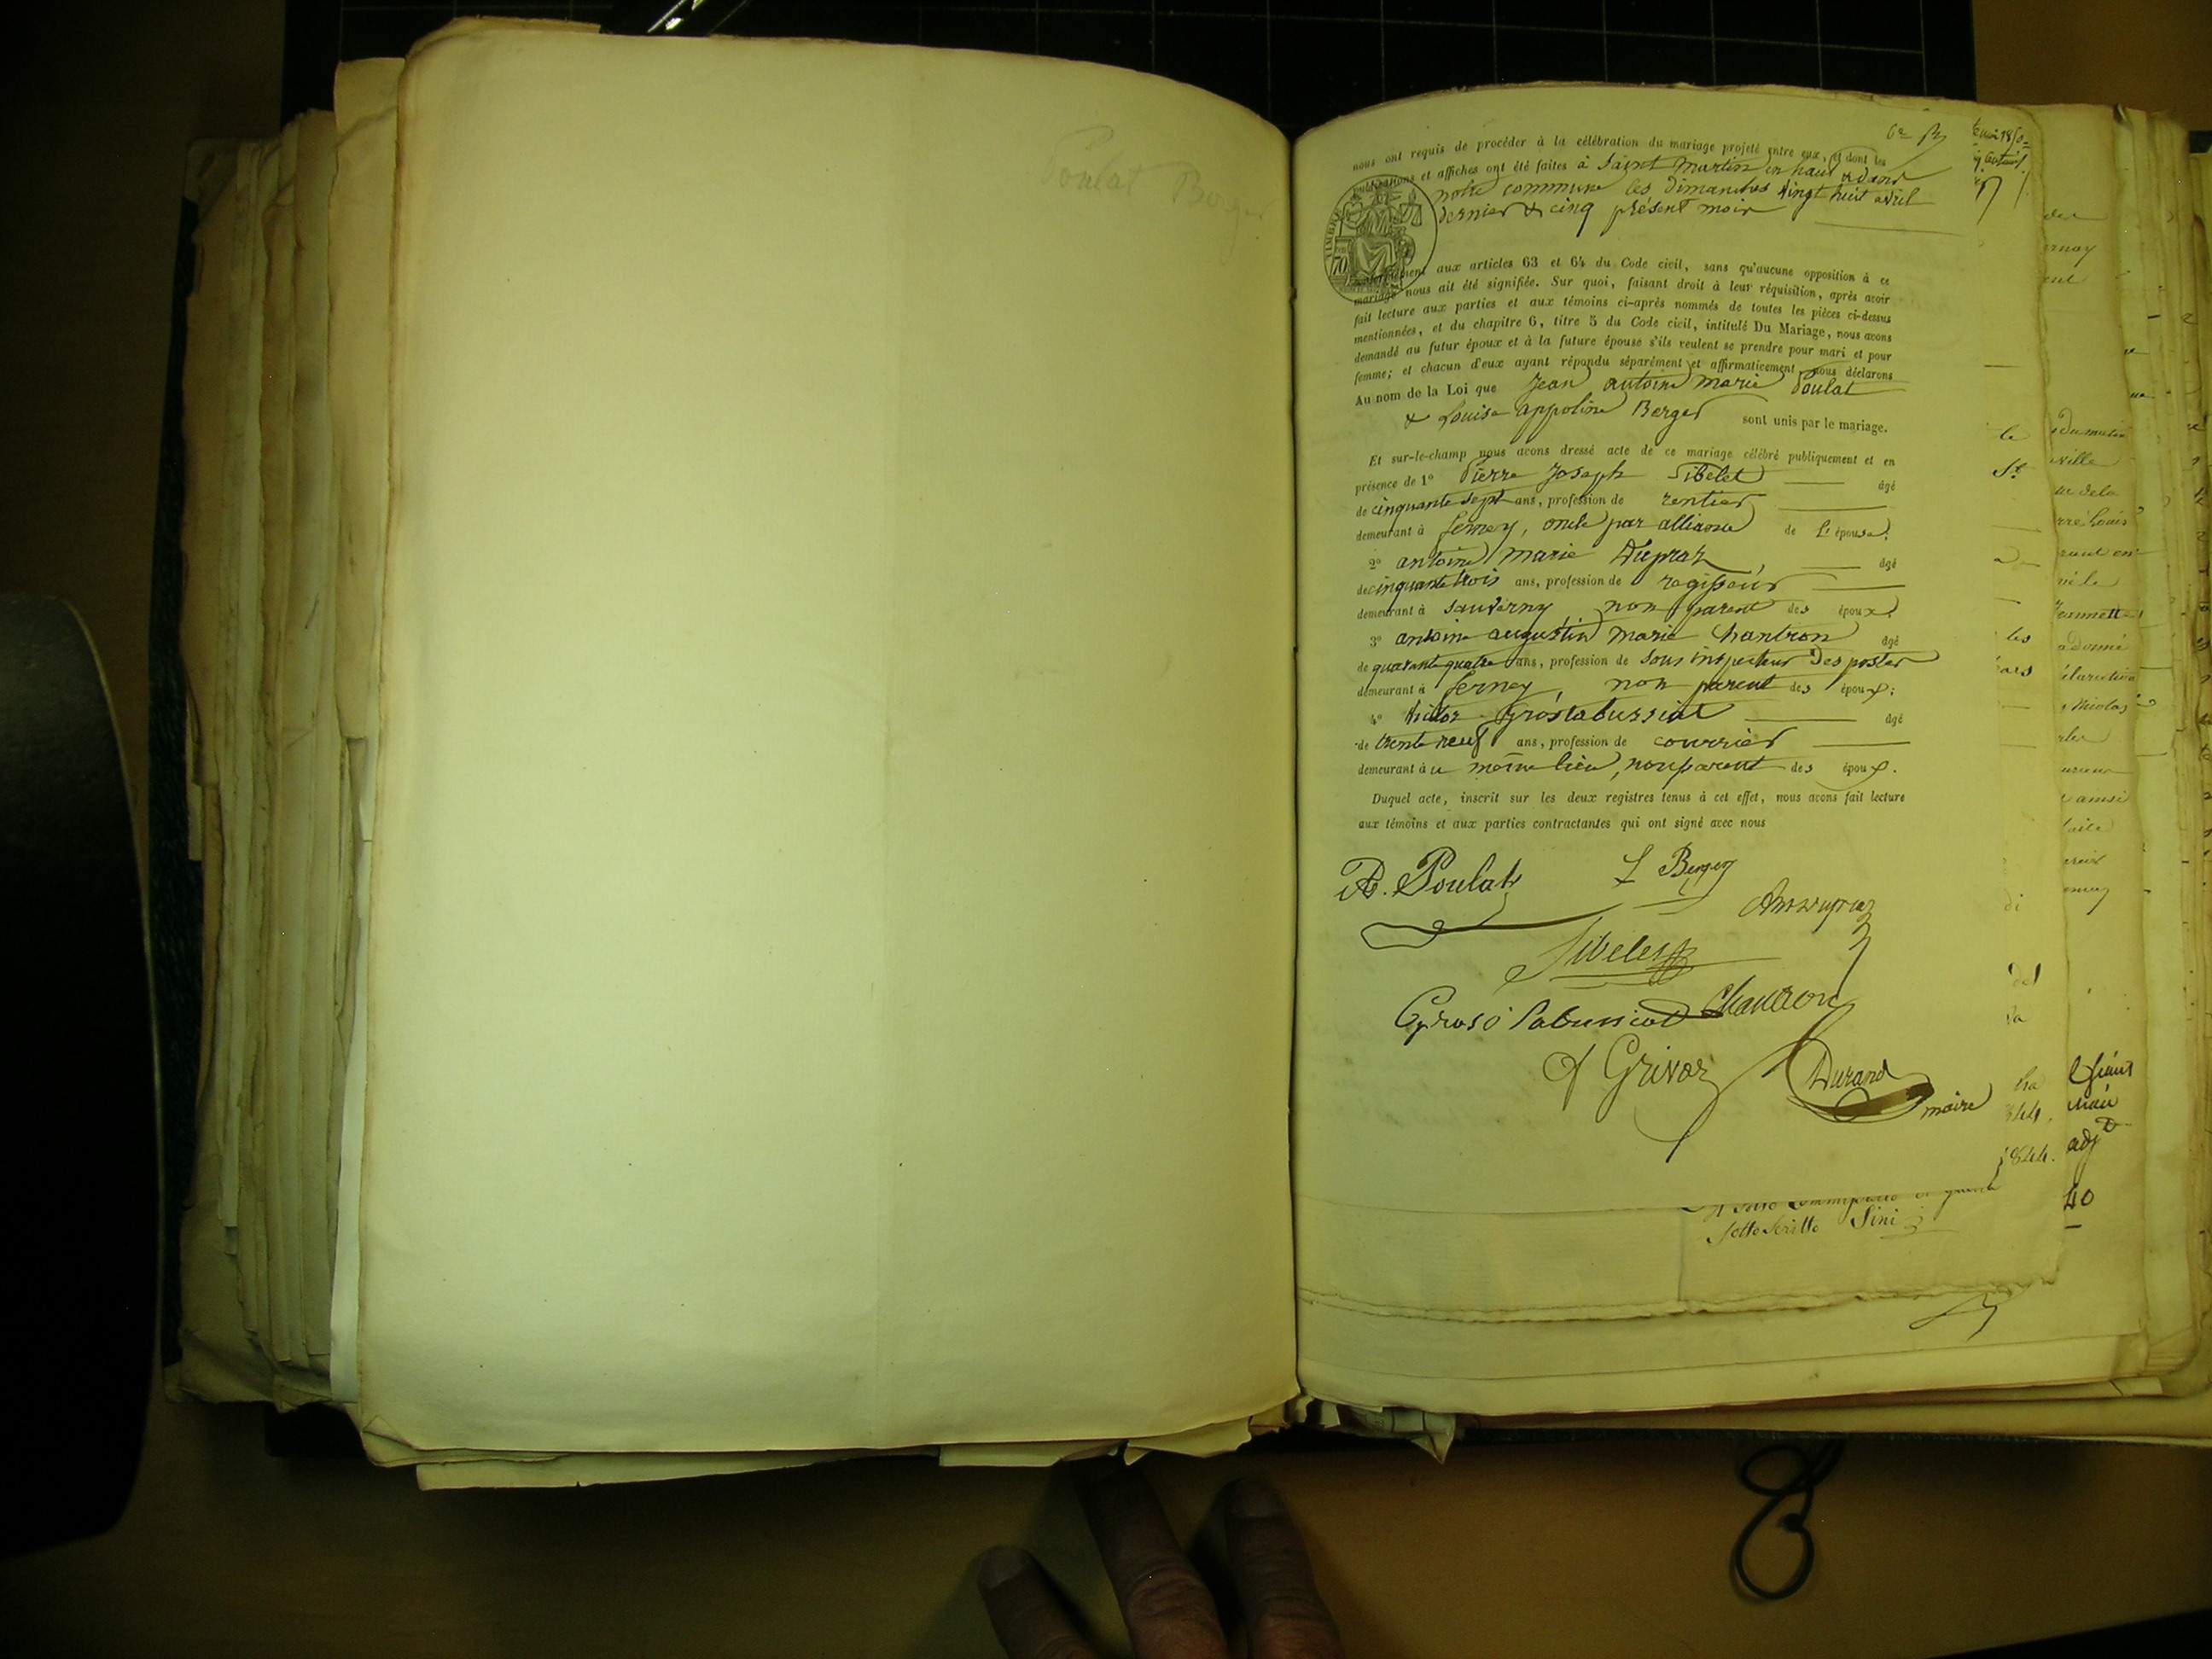 Poulat Berger
nous ont requis de procéder à la célébration du mariage projeté entre eux, et dont les
publications et affiches ont été faites à Saint Martin en haut & dans
notre commune les dimanches vingt huit avril
dernier & cinq présent mois
TIMBRE
70
conformément aux articles 63 et 64 du Code civil, sans qu'aucune opposition à ce
mariage nous ait été signifiée. Sur quoi, faisant droit à leur réquisition, après avoir
fait lecture aux parties et aux témoins ci-après nommés de toutes les pièces ci-dessus
mentionnées, et du chapitre 6, titre 5 du Code civil, intitulé Du Mariage, nous avons
demandé au futur époux et à la future épouse s'ils veulent se prendre pour mari et pour
femme; et chacun d'eux ayant répondu séparément et affirmativement, nous déclarons
Au nom de la Loi que Jean antoine marie Poulat
& Louise appoline Berger sont unis par le mariage.
Et sur-le-champ nous avons dressé acte de ce mariage célébré publiquement et en
présence de 1° Pierre Joseph Sibelet âgé
de cinquante sept ans, profession de rentier
demeurant à ferney, oncle par alliance de l'épouse;
2° antoine marie Dupraz, âgé
de cinquante trois ans, profession de regisseur
demeurant à sauverny non parent des époux;
3° antoine augustin marie Chantron âgé
de quarante quatre ans, profession de sous inspecteur des postes
demeurant à ferney, non parent des époux;
4° victor Groslabussiat âgé
de trente neuf ans, profession de courrier
demeurant à u même lieu, non parent des époux.
Duquel acte, inscrit sur les deux registres tenus à cet effet, nous avons fait lecture
aux témoins et aux parties contractantes qui ont signé avec nous
A. Poulat
L Berger
Sibelet
Chantron
Grivaz
Durand
maire
sotto scritto Sini
le
St
les
1844.
adjt
40